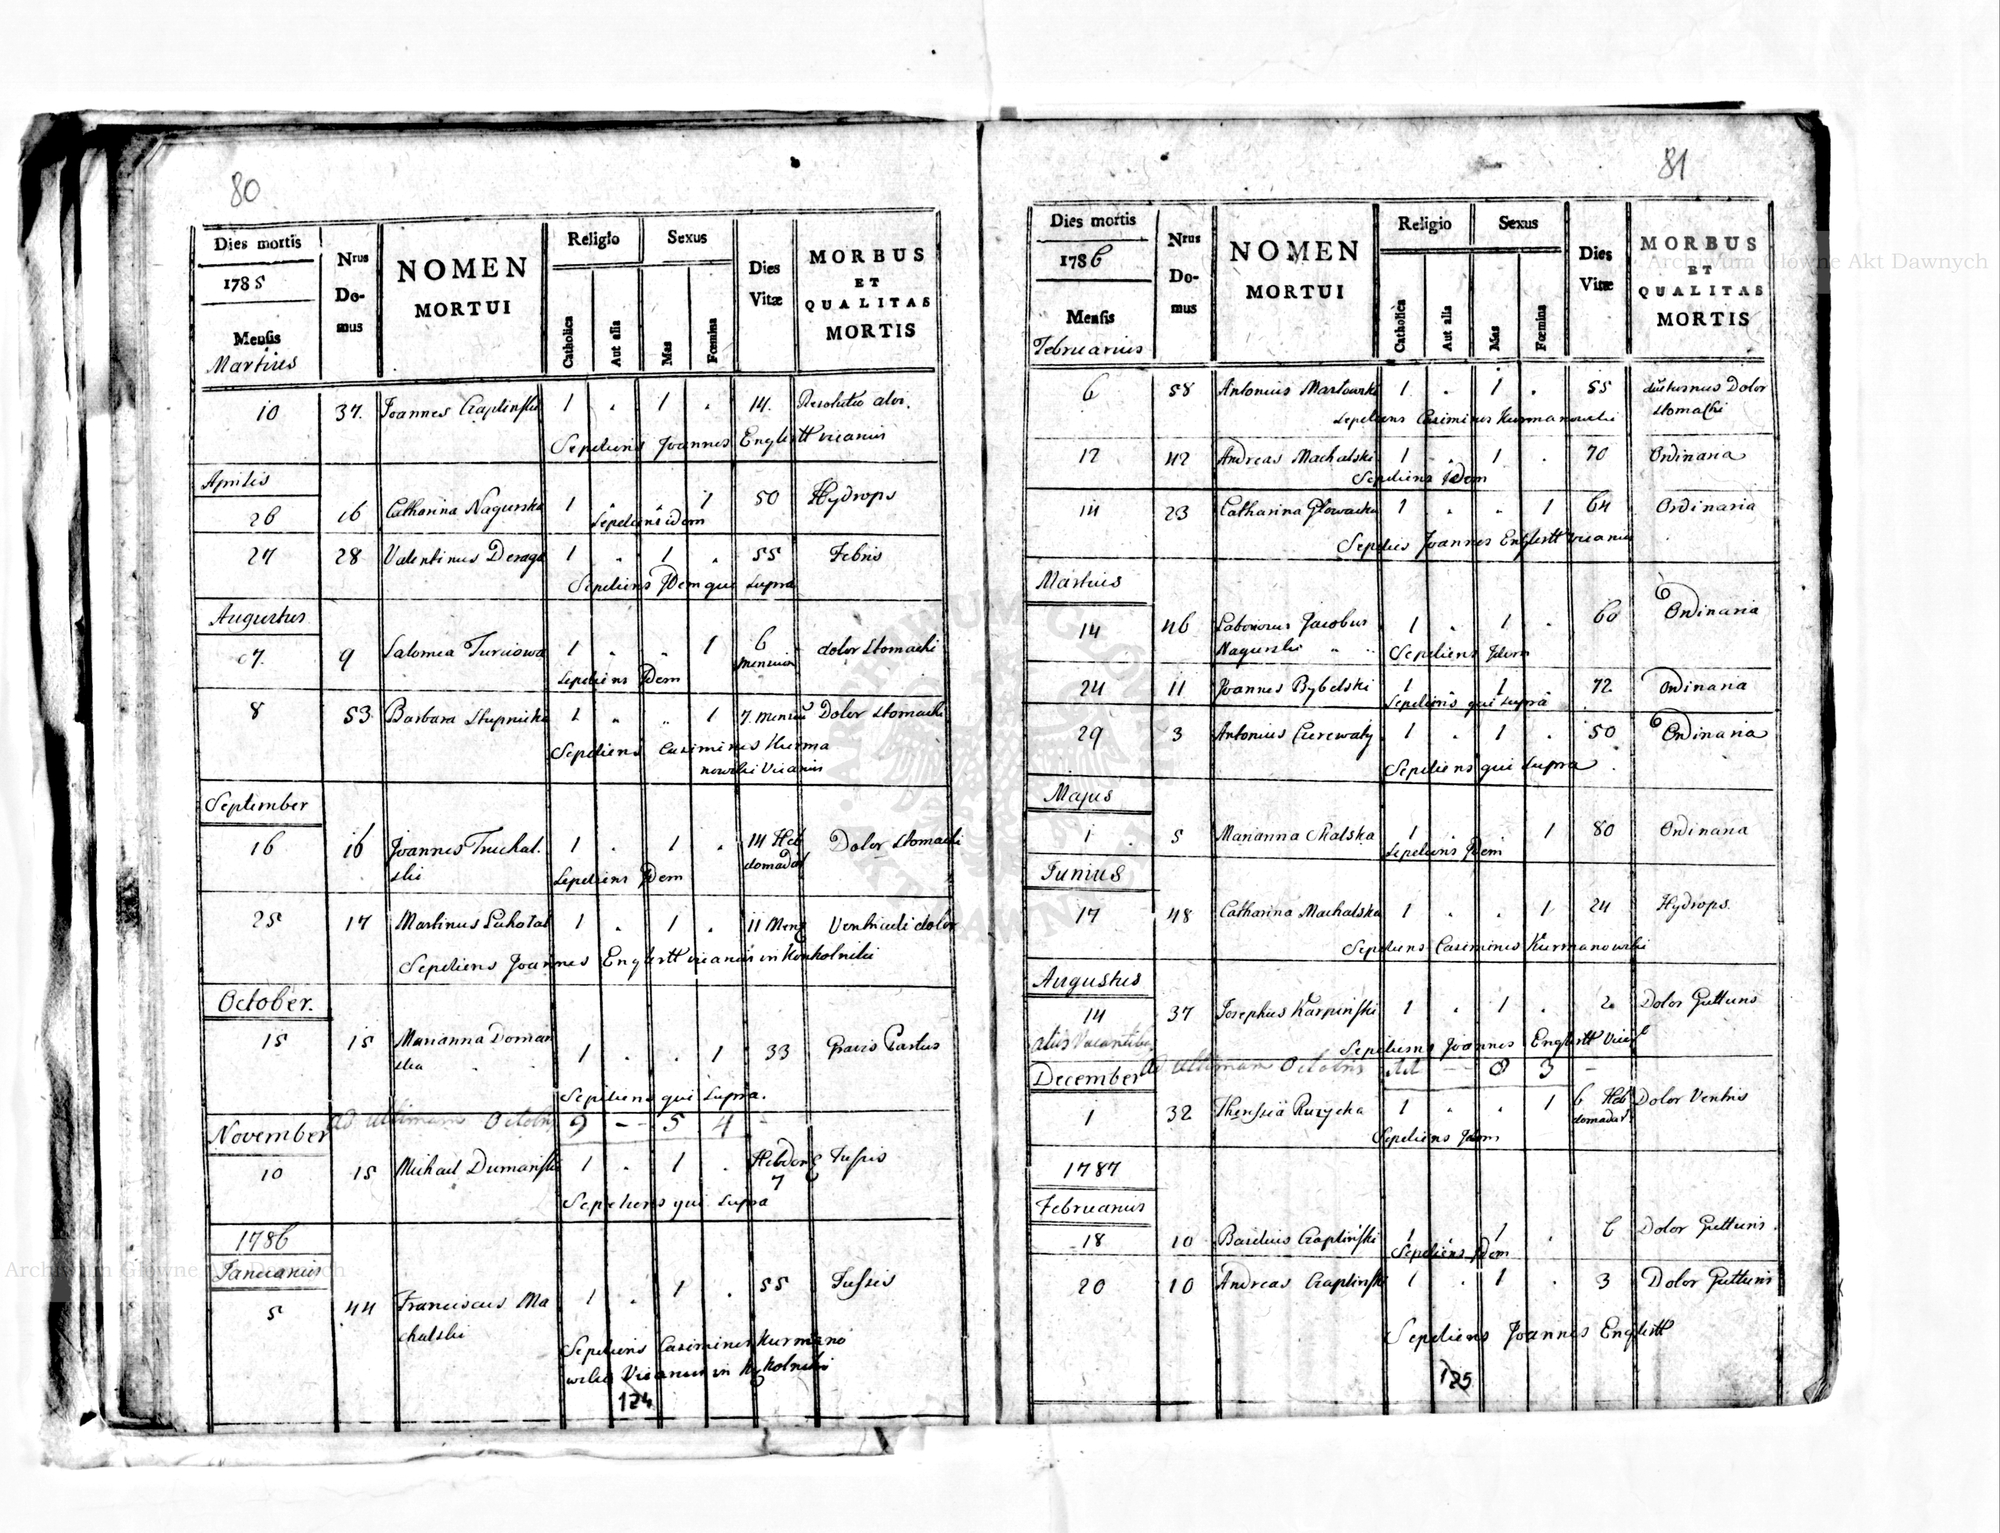 80
Dies mortis
1785
Mensis
Martius
Nrus Do-mus
NOMEN MORTUI
Religio
Catholica
Aut alia
Sexus
Mas
Fœmina
Dies Vitæ
MORBUS ET QUALITAS MORTIS
10 37. Joannes Czaplinski 1 . 1 . 14. Resolutio alvi.
Sepeliens Joannes Englertt vicarius
Aprilis
26 16 Catharina Nagurska 1 . . 1 50 Hydrops
Sepeliens idem
27 28 Valentinus Deraga 1 . 1 . 55 Febris
Sepeliens Idem qui supra
Augustus
7. 9 Salomea Turciowa 1 . . 1 6 mensium dolor stomachi
Sepeliens Idem
8 53 Barbara Stupnicka 1 . . 1 7. mensiu Dolor stomachi
Sepeliens Casimirus Kurma
nowski Vicarius
September
16 16 Joannes Truchal. 1 . 1 . 14 Heb Dolor stomachi
ski domadar
Sepeliens Idem
25 17 Martinus 1 . 1 . 11 Mens Ventriculi dolor
Sepeliens Joannes Englertt vicarius in Konkolniki
October.
15 15 Marianna Doman 1 . . 1 33 Gravis Partus
ska
Sepeliens qui supra.
ad ultimam Octobris 9 - - 5 4 -
November
10 15 Michael Dumański 1 . 1 . Hebdom 7 Tussis
Sepeliens qui supra
1786
Januarius
5 44 Franciscus Ma 1 . 1 . 55 Tussis
chalski
Sepeliens Casimirus Kurmano
wski Vicarius in Kąkolniki
124
81
Dies mortis
1786
Mensis
Februarius
Nrus Do-mus
NOMEN MORTUI
Religio
Catholica
Aut alia
Sexus
Mas
Fœmina
Dies Vitæ
MORBUS ET QUALITAS MORTIS
6 58 Antonius Marlowski 1 . 1 . 55 diuturnus Dolor
stomachi
Sepeliens Casimirus Kurmanowski
12 42 Andreas Machalski 1 . 1 . 70 Ordinaria
Sepeliens Idem
14 23 Catharina Głowacka 1 . . 1 64 Ordinaria
Sepeliens Joannes Englertt vicarius
Martius
14 46 Laboriosus Jacobus 1 . 1 . 60 Ordinaria
Nagurski
Sepeliens Idem
24 11 Joannes Bybelski 1 1 72 Ordinaria
Sepeliens qui supra
29 3 Antonius 1 . 1 . 50 Ordinaria
Sepeliens qui supra
Majus
1 5 Marianna Chalska 1 . 1 80 Ordinaria
Sepeliens Idem
Junius
17 48 Catharina Machalska 1 . . 1 24 Hydrops.
Sepeliens Casimirus Kurmanowski
Augustus
14 37 Josephus Karpinski 1 . 1 . 2 Dolor Gutturis
Sepeliens Joannes Englertt Vica
aliis Vacantibus
ad ultimam Octobris 11 - 8 3 -
December
1 32 Theressia Ruzycka 1 . . 1 6 Heb Dolor Ventris
domadar.
Sepeliens Idem
1787
Februarius
18 10 Basilius Czaplinski 1 . 1 . 6 Dolor Gutturis.
Sepeliens Idem
20 10 Andreas Czaplinski 1 . 1 . 3 Dolor Gutturis
Sepeliens Joannes Englertt
125
Archiwum Główne Akt Dawnych
Archiwum Główne Akt Dawnych
ARCHIWUM GŁÓWNE AKT DAWNYCH